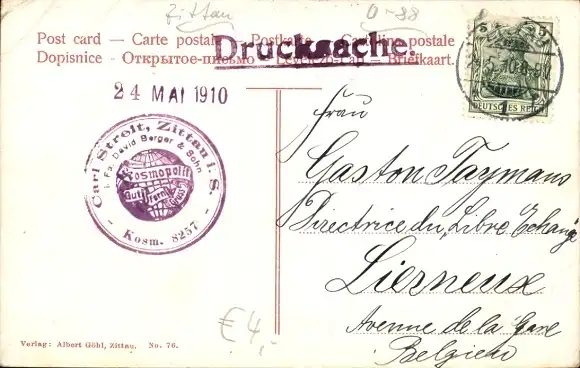 Zittau
D-88
Post card — Carte postale — Postkarte — Cartolina postale
Drucksache.
Dopisnice - Открытое-письмо — Levelező-Lap — Briefkaart.
24 MAI 1910
5 5
DEUTSCHES REICH
Carl Strelt, Zittau i. S.
i. Fa. David Berger & Sohn
Kosmopolit
Gut
- Kosm. 8257 -
Frau
Gaston Taymans
Directrice du "Libre Echange"
Lierneux
Avenue de la Gare
Belgien
€4,-
Verlag: Albert Göhl, Zittau. No. 76.